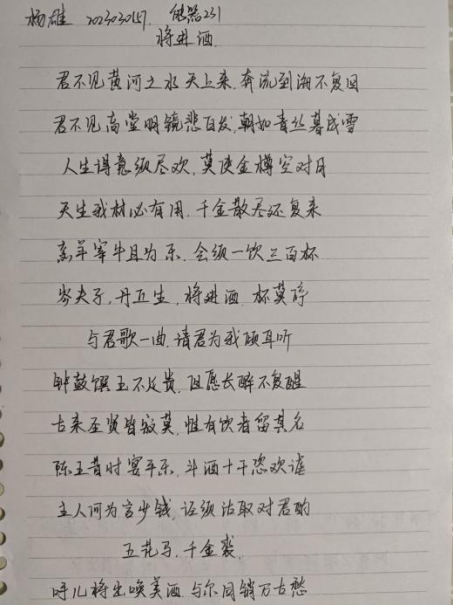 杨雄 2023030157 能器231
将进酒
君不见黄河之水天上来,奔流到海不复回
君不见高堂明镜悲白发,朝如青丝暮成雪
人生得意须尽欢,莫使金樽空对月
天生我材必有用,千金散尽还复来
烹羊宰牛且为乐,会须一饮三百杯
岑夫子,丹丘生,将进酒,杯莫停
与君歌一曲,请君为我倾耳听
钟鼓馔玉不足贵,但愿长醉不复醒
古来圣贤皆寂寞,惟有饮者留其名
陈王昔时宴平乐,斗酒十千恣欢谑
主人何为言少钱,径须沽取对君酌
五花马,千金裘
呼儿将出唤美酒,与尔同销万古愁